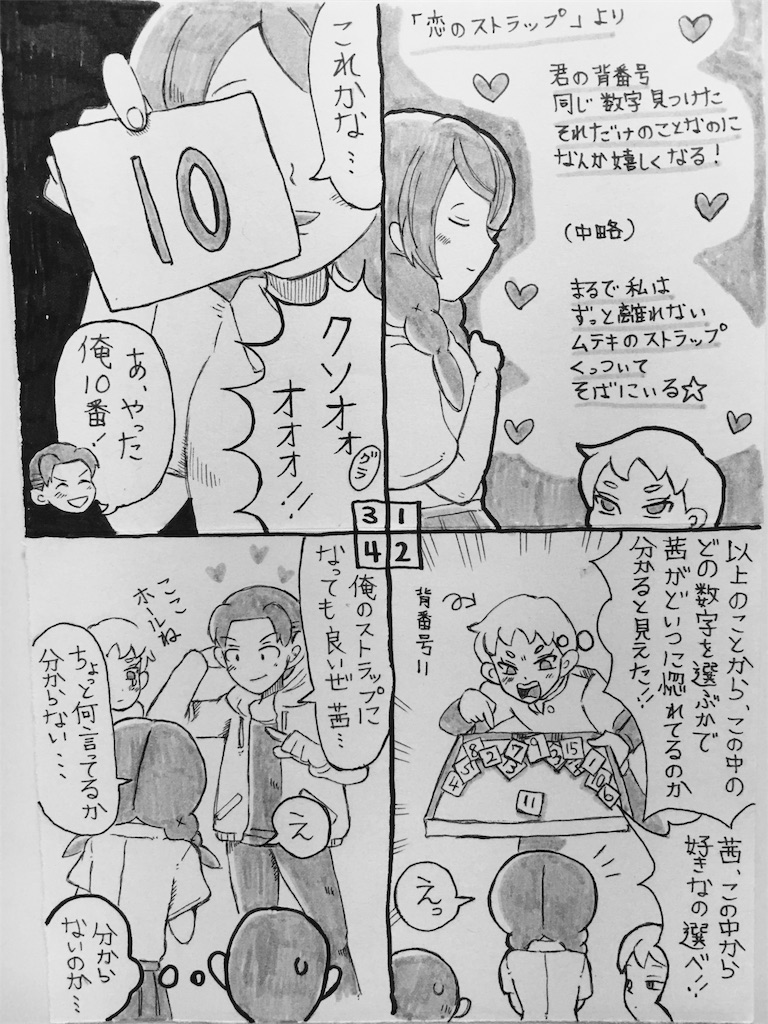 「恋のストラップ」より
君の背番号
同じ数字見つけた
それだけのことなのに
なんか嬉しくなる!
(中略)
まるで私は
ずっと離れない
ムテキのストラップ
くっついて
そばにいる☆
1
以上のことから、この中の
どの数字を選ぶかで
茜がどいつに惚れてるのか
分かると見えた!!
背番号11
茜、この中から
好きなの選べ!!
えっ
11
2
これかな…
10
クソオォ
オオオ!!
グラ
あ、やった
俺10番!
3
俺のストラップに
なっても良いぜ 茜…
ここ
ホールね
ちょっと何言ってるか
分からない、、、
え
分から
ないのか…
4